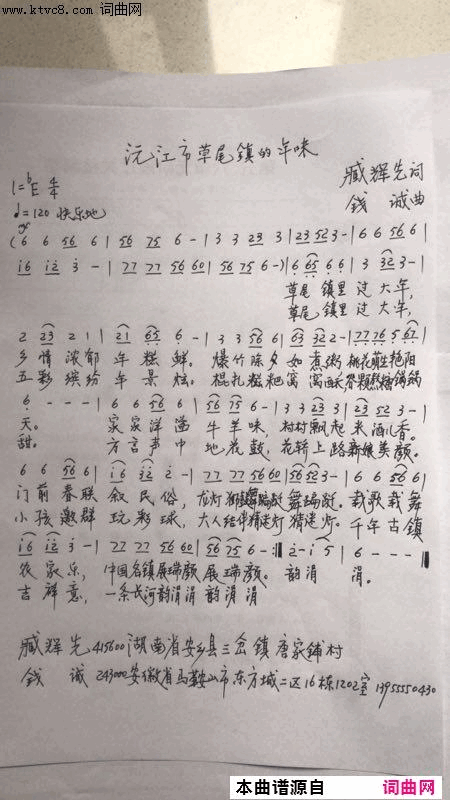 www.ktvc8.com 词曲网
沅江市草尾镇的年味
臧辉先词
1=bE 4/4
钱 诚曲
♩=120 快乐地
(6 6 56 6 | 56 75 6 - | 3 3 23 3 | 23 52 3 - | 6 6 56 6 |
i6 i2 3 - | 77 77 56 60 | 56 75 6 -) | 6 65 6 6 | 3 32 3 - |
草尾 镇里 过 大年,
草尾 镇里 过 大年,
2 23 2 1 | 21 65 6 - | 3 3 56 6 | 63 32 2 - | 77 76 5 67 |
乡情 浓郁 年糕 鲜。 爆竹除夕 如煮粥 桃花 艳阳
五彩 缤纷 年景 糍粑
6 - - - | 6 6 56 6 | 56 75 6 - | 3 3 23 3 | 23 52 3 - |
天。 家家洋溢 牛羊味, 村村飘起 米酒香。
甜。 方言声中 地花鼓, 花轿上路 新娘美颜。
6 6 56 6 | i6 32 2 - | 77 77 56 60 | 56 56 3 - | 6 6 56 6 |
门前春联 叙民俗, 龙灯 舞蹁跹。 载歌载舞
小孩邀群 玩彩球, 大人结伴猜谜灯 猜谜灯。 千年古镇
i6 i2 3 - | 77 77 56 60 | 56 75 6 - :| 2 - i 5 | 6 - - - ‖
农家乐, 中国名镇展瑞颜 展瑞颜。 韵涓 涓。
吉祥意, 一条长河韵涓涓 韵涓涓
臧辉先 415600 湖南省安乡县三岔镇唐家铺村
钱 诚 243000 安徽省马鞍山市东方城二区16栋1202室 13955550430
本曲谱源自 词曲网